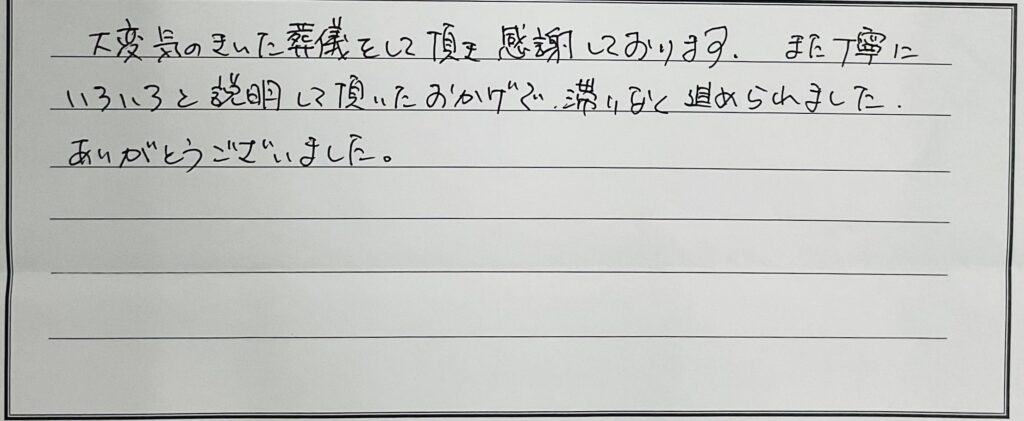 大変気のきいた葬儀をして頂き感謝しております。また丁寧に
いろいろと説明して頂いたおかげで、滞りなく進められました。
ありがとうございました。